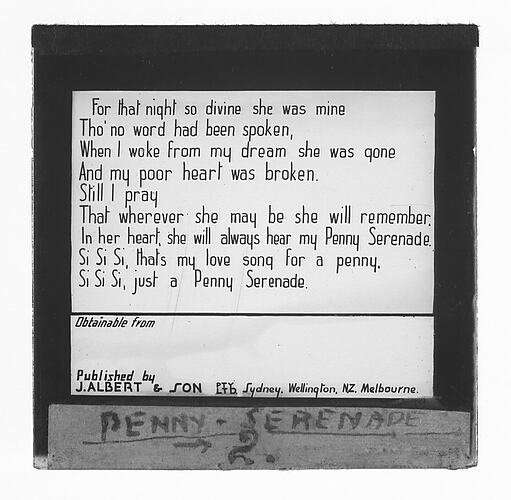 For that night so divine she was mine
Tho' no word had been spoken,
When I woke from my dream she was gone
And my poor heart was broken.
Still I pray
That wherever she may be she will remember,
In her heart, she will always hear my Penny Serenade.
Si Si Si, thats my love song for a penny,
Si Si Si, just a Penny Serenade.
Obtainable from
Published by
J. ALBERT & SON PTY LTD. Sydney, Wellington, NZ. Melbourne.
PENNY - SERENADE
2.